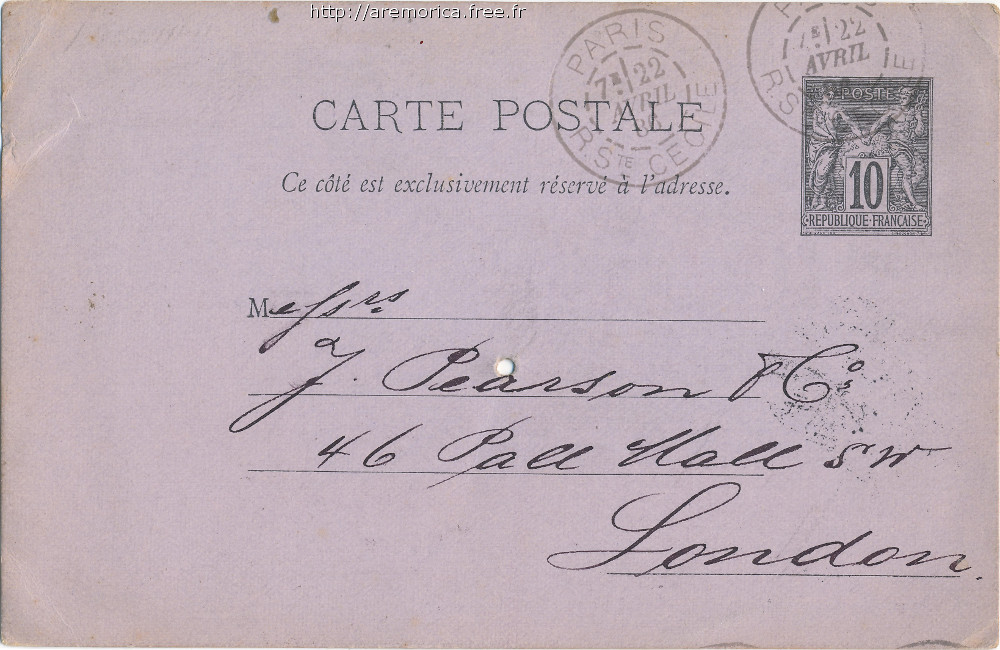 http://aremorica.free.fr
PARIS
7E 22
AVRIL
R. STE CECILE
7E 22
AVRIL
R. S
E
CARTE POSTALE
Ce côté est exclusivement réservé à l'adresse.
POSTE
10
REPUBLIQUE FRANÇAISE
Messrs
J. Pearson & Co.
46 Pall Mall S.W
London.